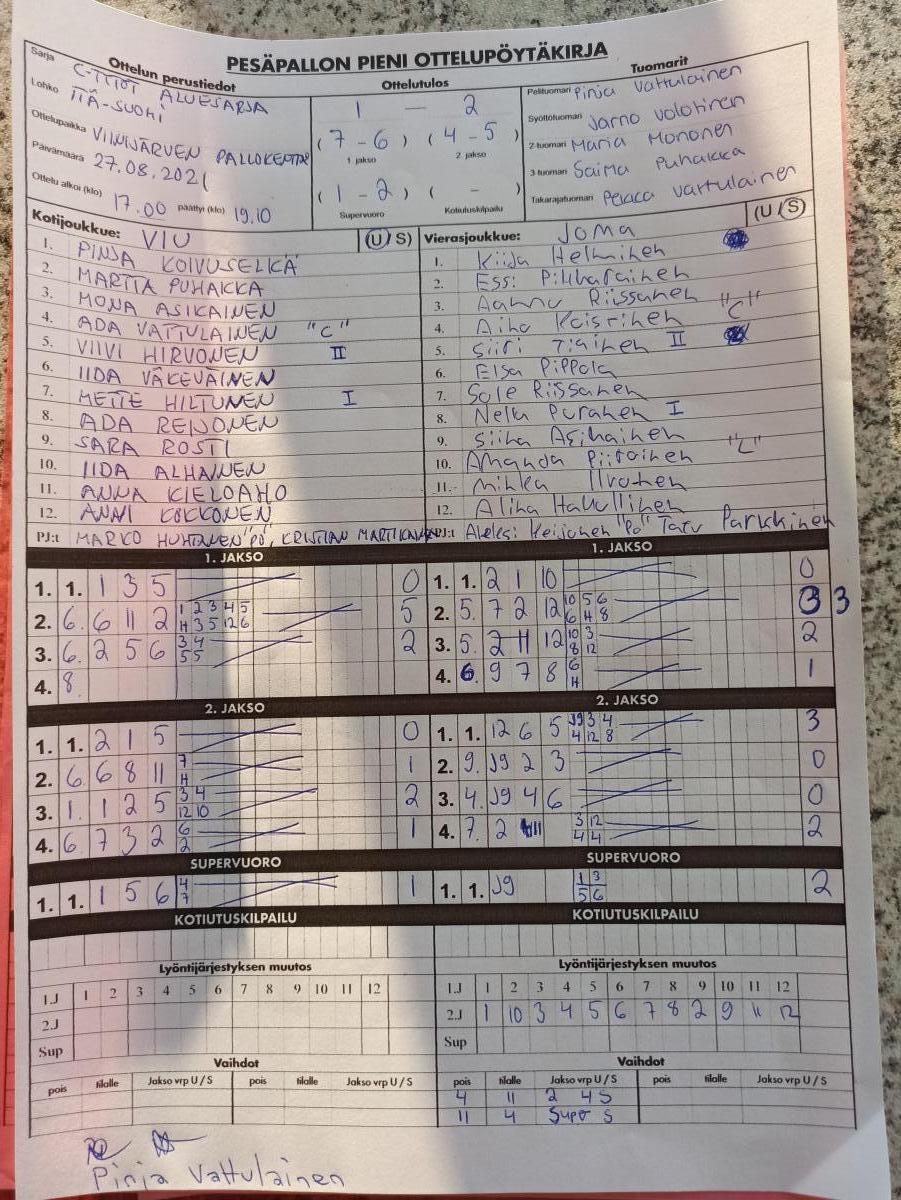 PESÄPALLON PIENI OTTELUPÖYTÄKIRJA
Ottelun perustiedot
Sarja C-TYTÖT ALUESARJA
Lohko ITÄ-SUOMI
Ottelupaikka VIINIJÄRVEN PALLOKENTTÄ
Päivämäärä 27.08.2021
Ottelu alkoi (klo) 17.00 päättyi (klo) 19.10
Ottelutulos
1 — 2
(7 - 6) (4 - 5)
1 jakso 2 jakso
(1 - 2) ( - )
Supervuoro Kotiutuskilpailu
Tuomarit
Pelituomari Pinja Vattulainen
Syöttötuomari Jarno Volotinen
2-tuomari Maria Mononen
3-tuomari Saima Puhakka
Takarajatuomari Pekka Vattulainen
Kotijoukkue: VIU (U/S)
1. PINJA KOIVUSELKÄ
2. MARTTA PUHAKKA
3. MONA ASIKAINEN
4. ADA VATTULAINEN "C"
5. VIIVI HIRVONEN II
6. IIDA VÄKEVÄINEN
7. METTE HILTUNEN I
8. ADA REIJONEN
9. SARA ROSTI
10. IIDA ALHAINEN
11. ANNA KIELOAHO
12. ANNI KOKKONEN
PJ:t MARKO HUHTANEN "PÖ", KRISTIAN MARTIKAINEN
Vierasjoukkue: JoMa (U/S)
1. Kiija Helminen
2. Essi Pikkarainen
3. Aamu Riissanen
4. Aino Kaistinen "C"
5. Siiri Tiainen II
6. Elsa Pippola
7. Sole Riissanen
8. Nella Puranen I
9. Siina Asikainen
10. Amanda Piirainen "L"
11. Minka Ilvonen
12. Aliina Hakulinen
PJ:t Aleksi Keijonen "PÖ" Tatu Parkkinen
1. JAKSO
1. 1. 1 3 5 0
2. 6. 6 11 2 1 2 3 4 5 5
H 3 5 12 6
3. 6. 2 5 6 3 4 2
5 5
4. 8.
2. JAKSO
1. 1. 2 1 5 0
2. 6. 6 8 11 7 1
H
3. 1. 1 2 5 3 4 2
12 10
4. 6. 7 3 2 6 1
2
SUPERVUORO
1. 1. 1 5 6 4 1
7
KOTIUTUSKILPAILU
1. JAKSO
1. 1. 2 1 10 0
2. 5. 7 2 12 10 5 6 3 3
6 H 8
3. 5. 2 11 12 10 3 2
8 12
4. 6. 9 7 8 6 1
H
2. JAKSO
1. 1. 12 6 5 J9 3 4 3
4 12 8
2. 9. J9 2 3 0
3. 4. J9 4 6 0
4. 7. 2 11 3 12 2
4 4
SUPERVUORO
1. 1. J9 1 3 2
5 6
KOTIUTUSKILPAILU
Lyöntijärjestyksen muutos
1.J 1 2 3 4 5 6 7 8 9 10 11 12
2.J
Sup
Vaihdot
pois tilalle Jakso vrp U / S pois tilalle Jakso vrp U / S
Lyöntijärjestyksen muutos
1.J 1 2 3 4 5 6 7 8 9 10 11 12
2.J 1 10 3 4 5 6 7 8 2 9 11 12
Sup
Vaihdot
pois tilalle Jakso vrp U / S pois tilalle Jakso vrp U / S
4 11 2 4 S
11 4 Super S
Pinja Vattulainen